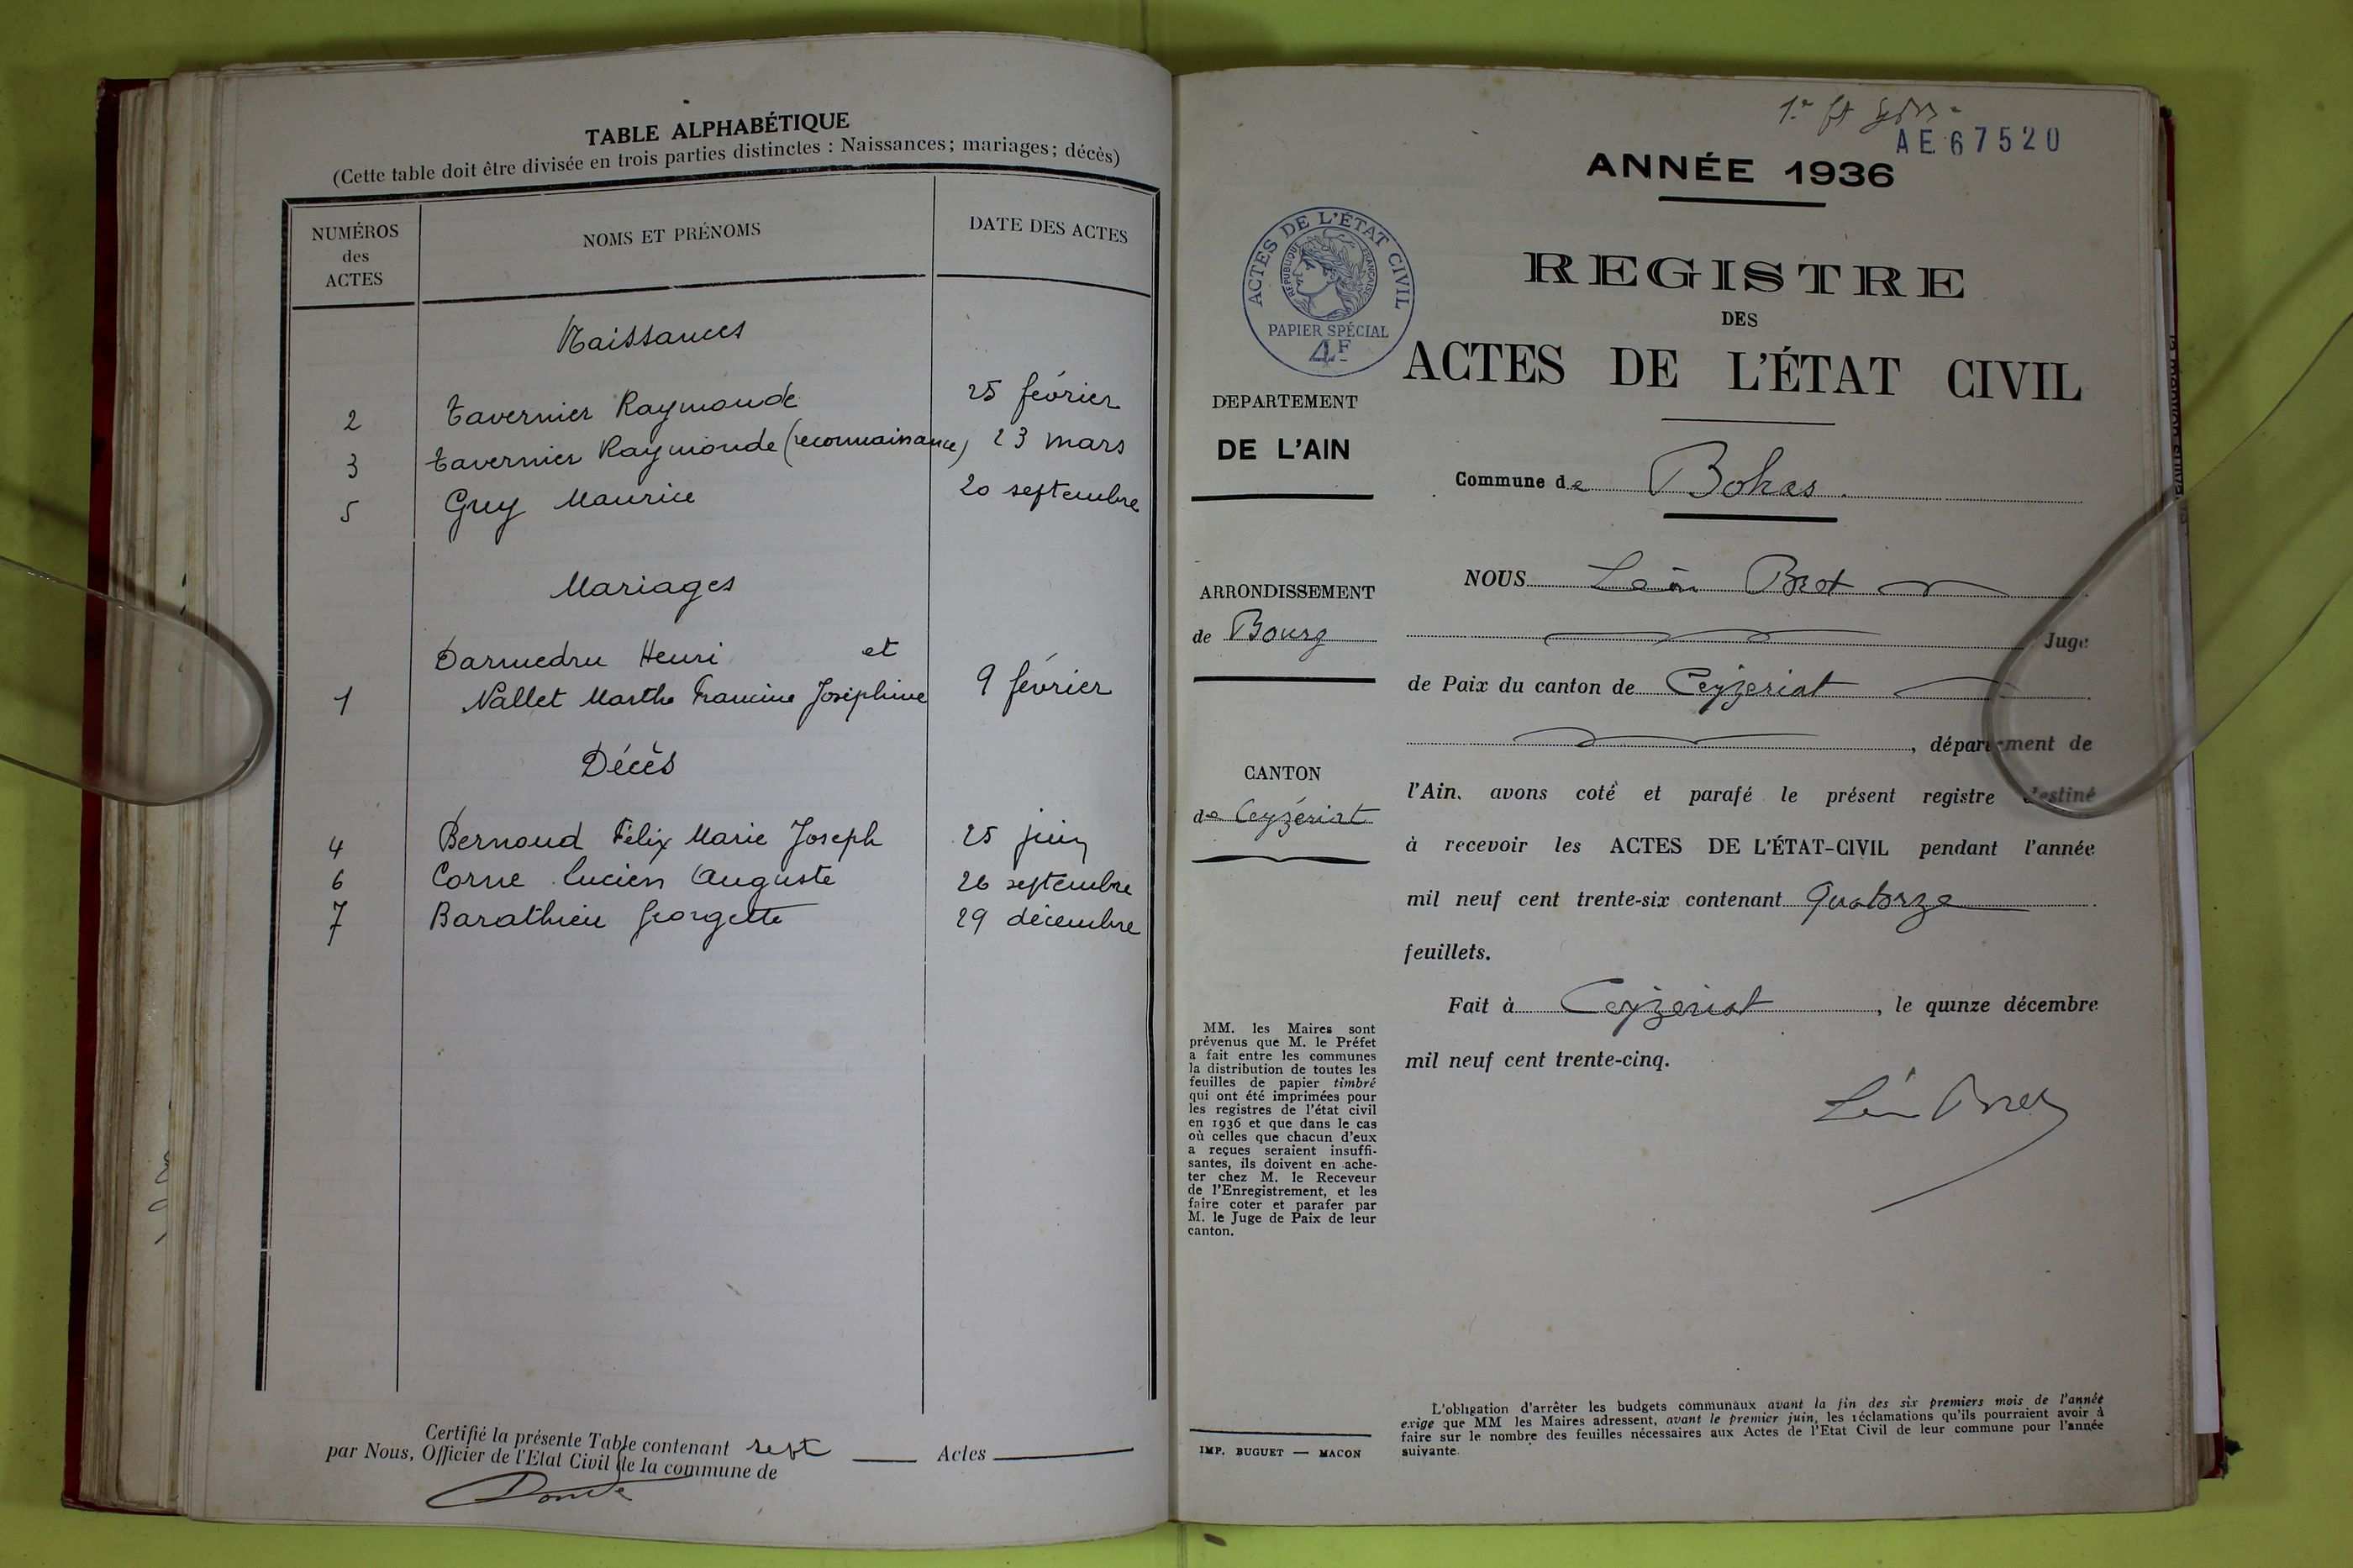 TABLE ALPHABÉTIQUE
(Cette table doit être divisée en trois parties distinctes : Naissances; mariages; décès)
NUMÉROS
des
ACTES
NOMS ET PRÉNOMS
DATE DES ACTES
Naissances
2 Tavernier Raymonde 25 février
3 Tavernier Raymonde (reconnaissance) 23 mars
5 Guy Maurice 20 septembre
Mariages
Darmedru Henri et
1 Nallet Marthe Francine Joséphine 9 février
Décès
4 Bernoud Félix Marie Joseph 25 juin
6 Corne Lucien Auguste 26 septembre
7 Barathieu Georgette 29 décembre
Certifié la présente Table contenant sept Actes
par Nous, Officier de l'Etat Civil de la commune de
AE 67520
ANNÉE 1936
REGISTRE
DES
ACTES DE L'ÉTAT CIVIL
ACTES DE L'ÉTAT CIVIL
RÉPUBLIQUE FRANÇAISE
PAPIER SPÉCIAL
4F
DEPARTEMENT
DE L'AIN
ARRONDISSEMENT
de Bourg
CANTON
de Ceyzériat
MM. les Maires sont
prévenus que M. le Préfet
a fait entre les communes
la distribution de toutes les
feuilles de papier timbré
qui ont été imprimées pour
les registres de l'état civil
en 1936 et que dans le cas
où celles que chacun d'eux
a reçues seraient insuffi-
santes, ils doivent en ache-
ter chez M. le Receveur
de l'Enregistrement, et les
faire coter et parafer par
M. le Juge de Paix de leur
canton.
IMP. BUGUET — MACON
Commune de Bohas.
NOUS Léon Bret
Juge
de Paix du canton de Ceyzeriat
, département de
l'Ain, avons coté et parafé le présent registre destiné
à recevoir les ACTES DE L'ÉTAT-CIVIL pendant l'année
mil neuf cent trente-six contenant Quatorze
feuillets.
Fait à Ceyzeriat, le quinze décembre
mil neuf cent trente-cinq.
Léon Bret
L'obligation d'arrêter les budgets communaux avant la fin des six premiers mois de l'année
exige que MM les Maires adressent, avant le premier juin, les réclamations qu'ils pourraient avoir à
faire sur le nombre des feuilles nécessaires aux Actes de l'Etat Civil de leur commune pour l'année
suivante.